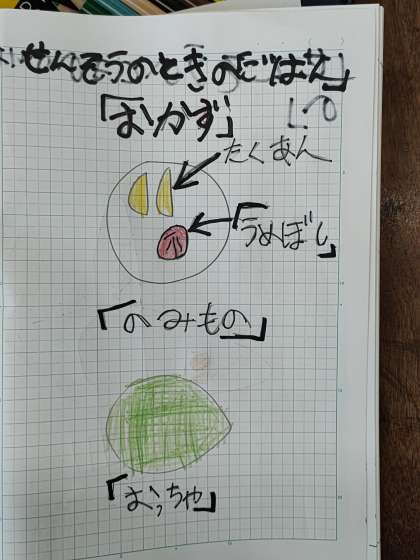 せんそうのときの「ごはん」
「おかず」
たくあん
「うめぼし」
「のみもの」
「おっちゃ」